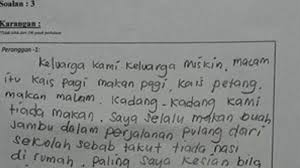 Soalan : 3
Karangan :
Peranggan -1:
Keluarga kami keluarga miskin, macam
itu kais pagi makan pagi, kais petang
makan malam. Kadang-kadang kami
tiada makan. Saya selalu makan buah
jambu dalam perjalanan pulang dari
sekolah sebab takut tiada nasi
di rumah, paling saya kesian bila